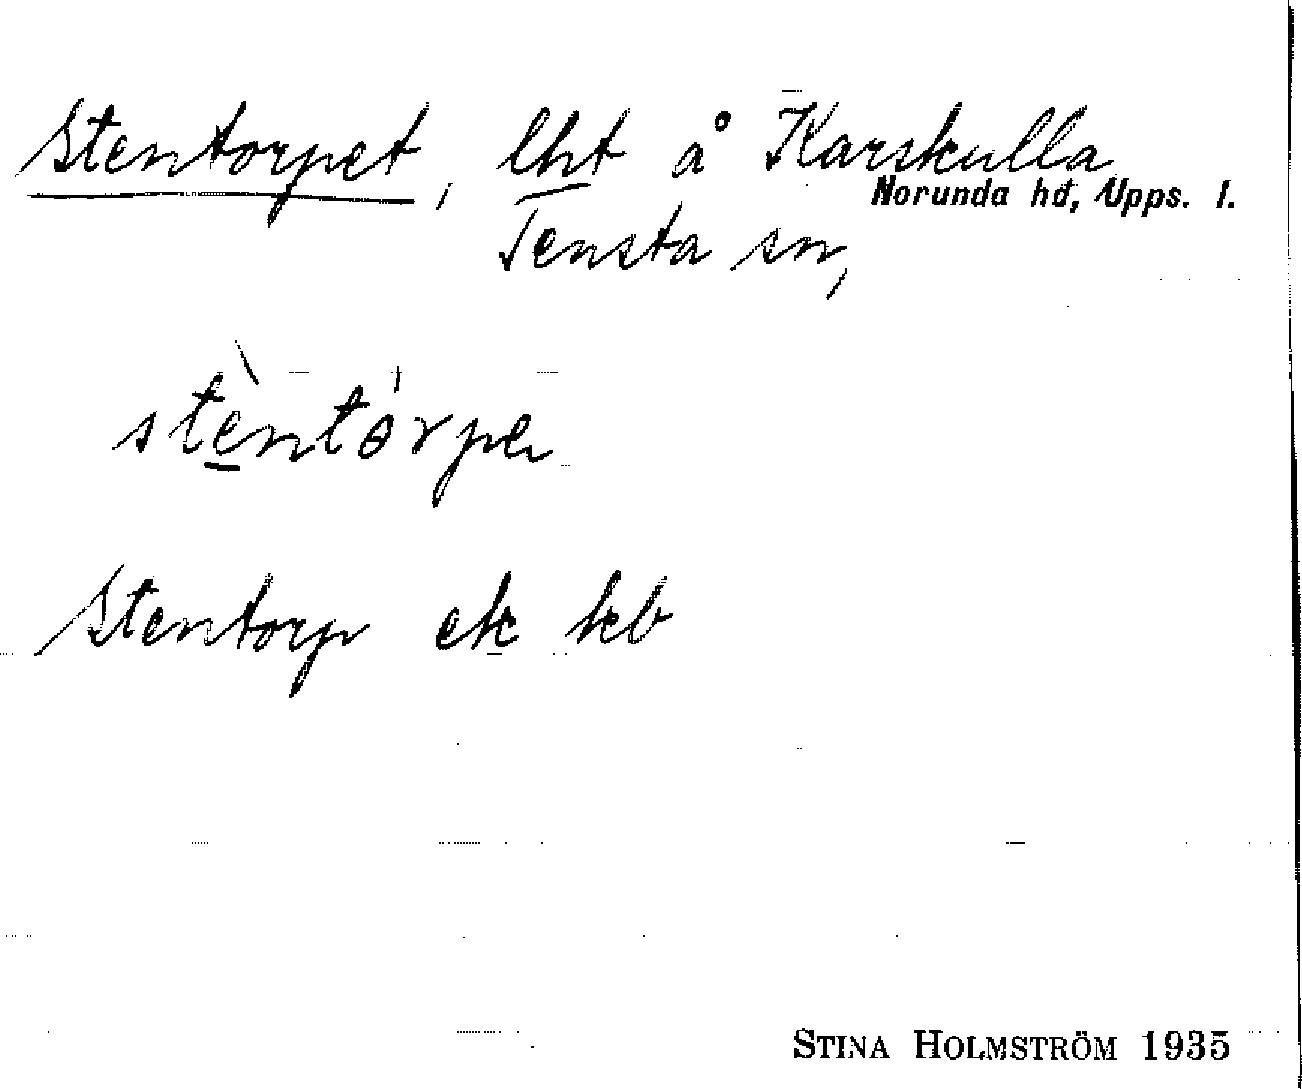 Stentorpet, lht å Karskulla
Norunda hd, Upps. l.
Tensta sn,
stèntórpe
Stentorp ek kb
STINA HOLMSTRÖM 1935